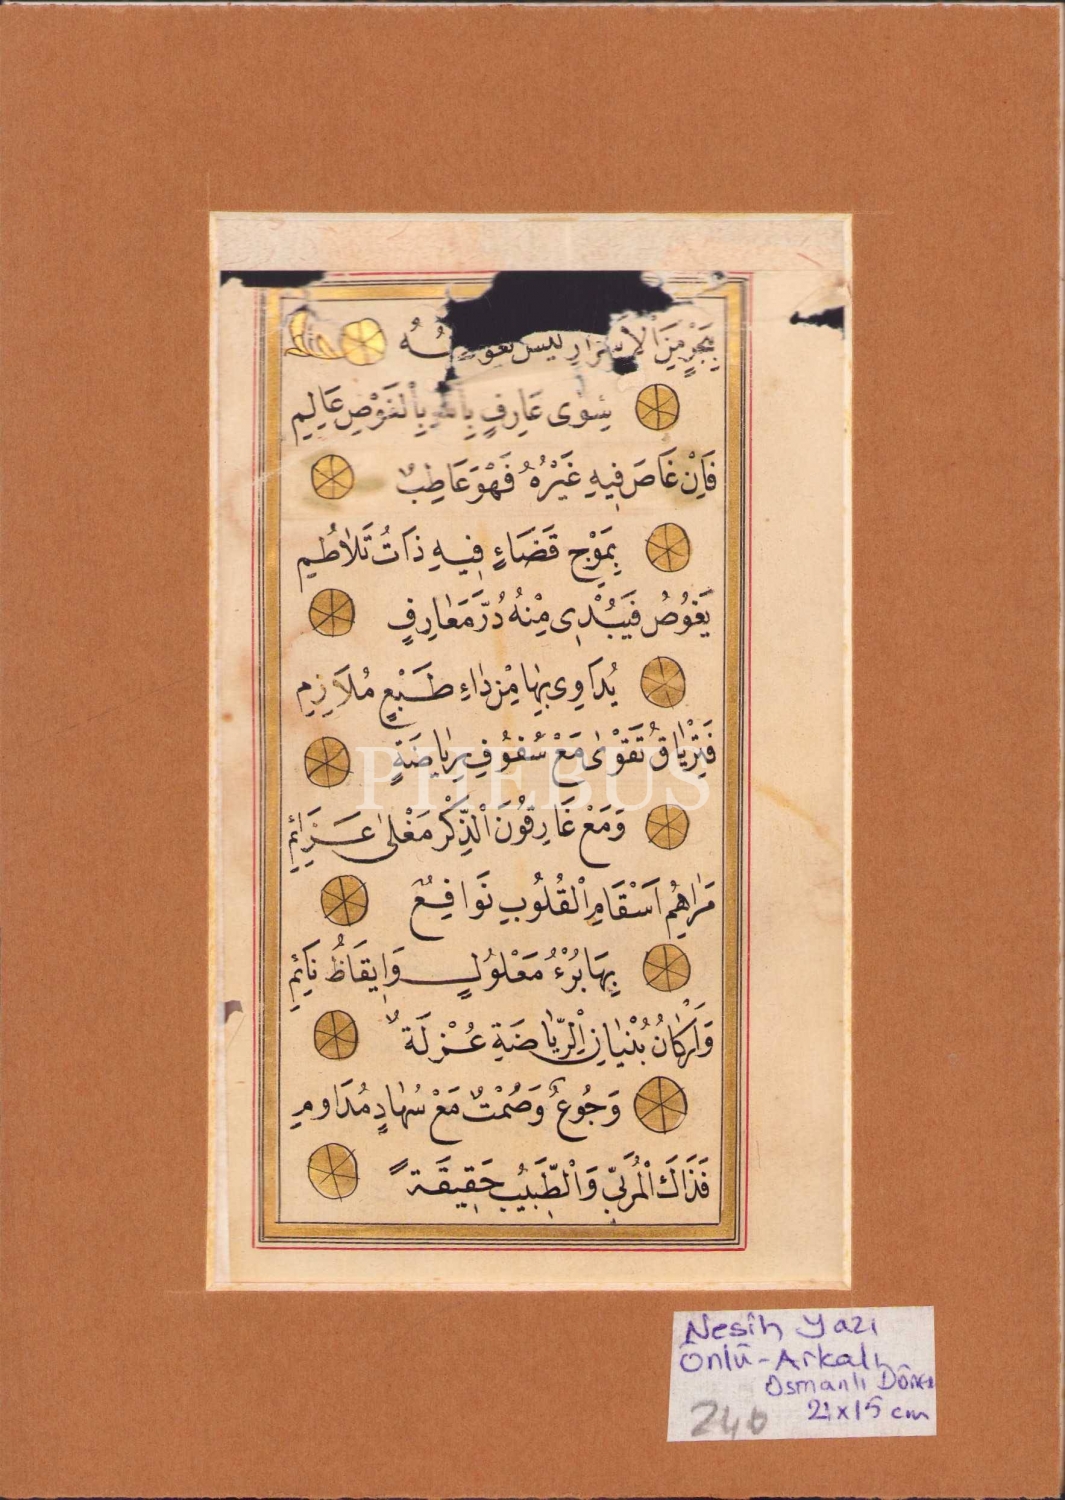 بِبَحْرٍ مِنَ الْاَسْرَارِ لَيْسَ
سِوٰى عَارِفٍ بِاللهِ بِالْغَوْصِ عَالِمِ
فَاِنْ غَاصَ فِيهِ غَيْرُهُ فَهْوَ عَاطِبٌ
بِمَوْجِ قَضَاءٍ فِيهِ ذَاتُ تَلَاطُمِ
يَغُوصُ فَيُبْدِى مِنْهُ دُرَّ مَعَارِفٍ
يُدَاوِى بِهَا مِنْ دَاءِ طَبْعٍ مُلَازِمِ
فَتِرْيَاقُ تَقْوٰى مَعْ سُفُوفِ رِيَاضَةٍ
PHEBUS
وَمَعْ غَارِقُونَ الذِّكْرِ مَغْلٰى عَزَائِمِ
مَرَاهِمُ اَسْقَامِ الْقُلُوبِ نَوَافِعٌ
بِهَا بُرْءُ مَعْلُولٍ وَاِيقَاظُ نَائِمِ
وَاَرْكَانُ بُنْيَانِ الرِّيَاضَةِ عُزْلَةٌ
وَجُوعٌ وَصُمْتٌ مَعْ سُهَادٍ مُدَاوِمِ
فَذَاكَ الْمُرَبِّى وَالطَّبِيبُ حَقِيقَةً
Nesih Yazı
Önlü-Arkalı
Osmanlı
21x15 cm
240